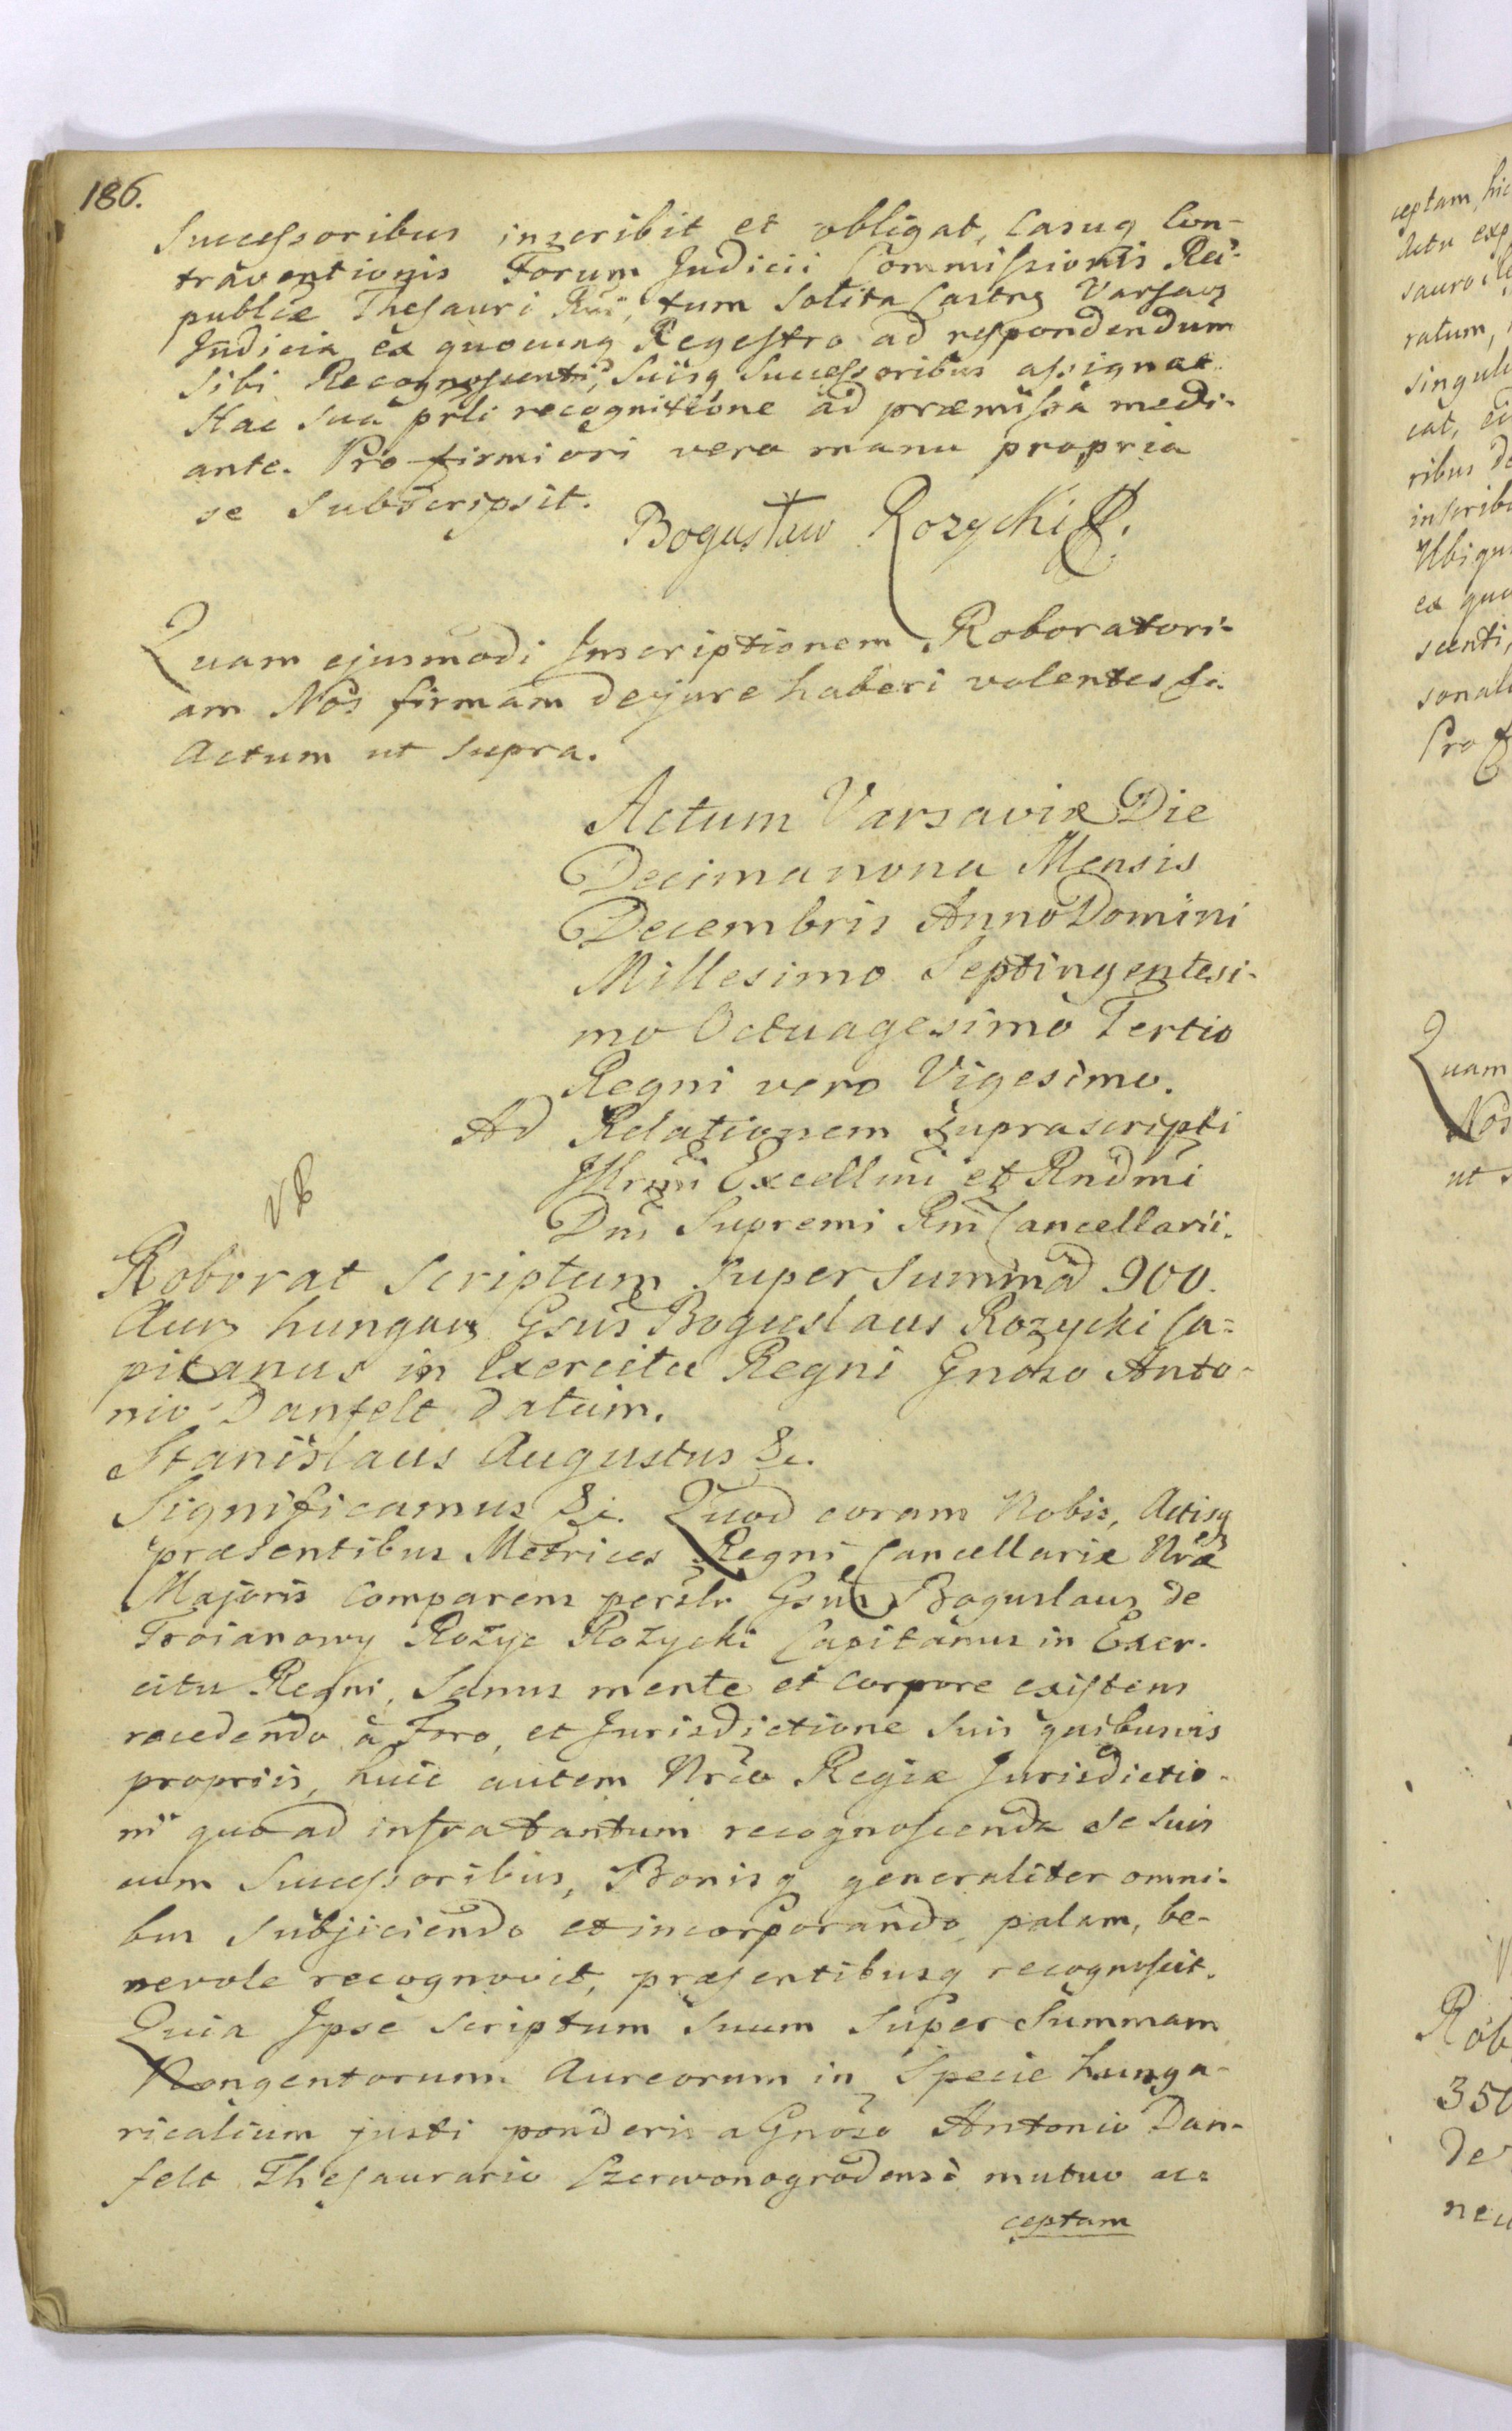 186.
Successoribus inscribit et obligat, Casuq Con-
traventionis Forum Judicii Commissionis Rei-
publicæ Thesauri Rni, tum solita Castrz Varsavz
Judicia ex quocunq Regestro ad respondendum
sibi Recognoscenti, Suisq Successoribus assignat.
Hac sua pnti recognitione ad præmissa medi-
ante. Pro firmiori vero manu propria
se subscripsit.
Bogusław Rozycki
Quam ejusmodi Inscriptionem Roboratori-
am Nos firmam dejure haberi volentes &c.
Actum ut supra.
Actum Varsaviæ Die
Decima nona Mensis
Decembris Anno Domini
Millesimo Septingentesi-
mo Octuagesimo Tertio
Regni vero Vigesimo.
Ad Relationem suprascripti
Illrmi Excellmi et Rndmi
Dni Supremi Rni Cancellarii.
Roborat Scriptum super Summã 900.
Aurz hungarz Gsus Boguslaus Rozycki Ca-
pitanus in Exercitu Regni Gnoso Anto-
nio Danfelt datum.
Stanislaus Augustus &c.
Significamus &c. Quod coram Nobis, Actisq
præsentibus Metrices Regni Cancellariæ Nræ
Majoris comparens personlr Gsus Boguslaus de
Troianowy Rożyc Rożycki Capitanus in Exer-
citu Regni, Sanus mente et corpore existens
recedendo à Foro, et Jurisdictione suis quibusvis
propriis, huic autem Nræ Regiæ Jurisdictio-
ni quo ad infra tantum recognoscenda se suis
cum Successoribus, Bonisq generaliter omni-
bus subjiciendo et incorporando, palam, be-
nevole recognovit, præsentibusq recognoscit.
Quia Ipse Scriptum suum super Summam
Nongentorum Aureorum in Specie hunga-
ricalium justi ponderis a Gnoso Antonio Dan-
felt Thesaurario Czerwonogrodensi mutuo ac-
ceptam